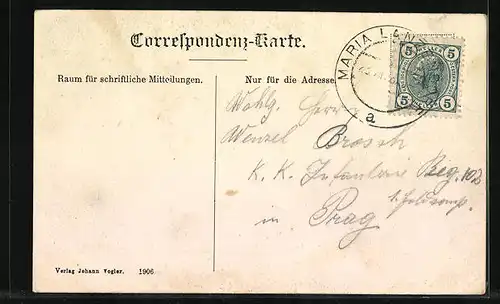 Correspondenz-Karte.
Raum für schriftliche Mitteilungen.
Nur für die Adresse.
MARIA LAN
a
5 5
5 5
Wohlg. Herrn
Wenzel Brosch
K. K. Infanterie Reg. 102
in Prag
Verlag Johann Vogler. 1906